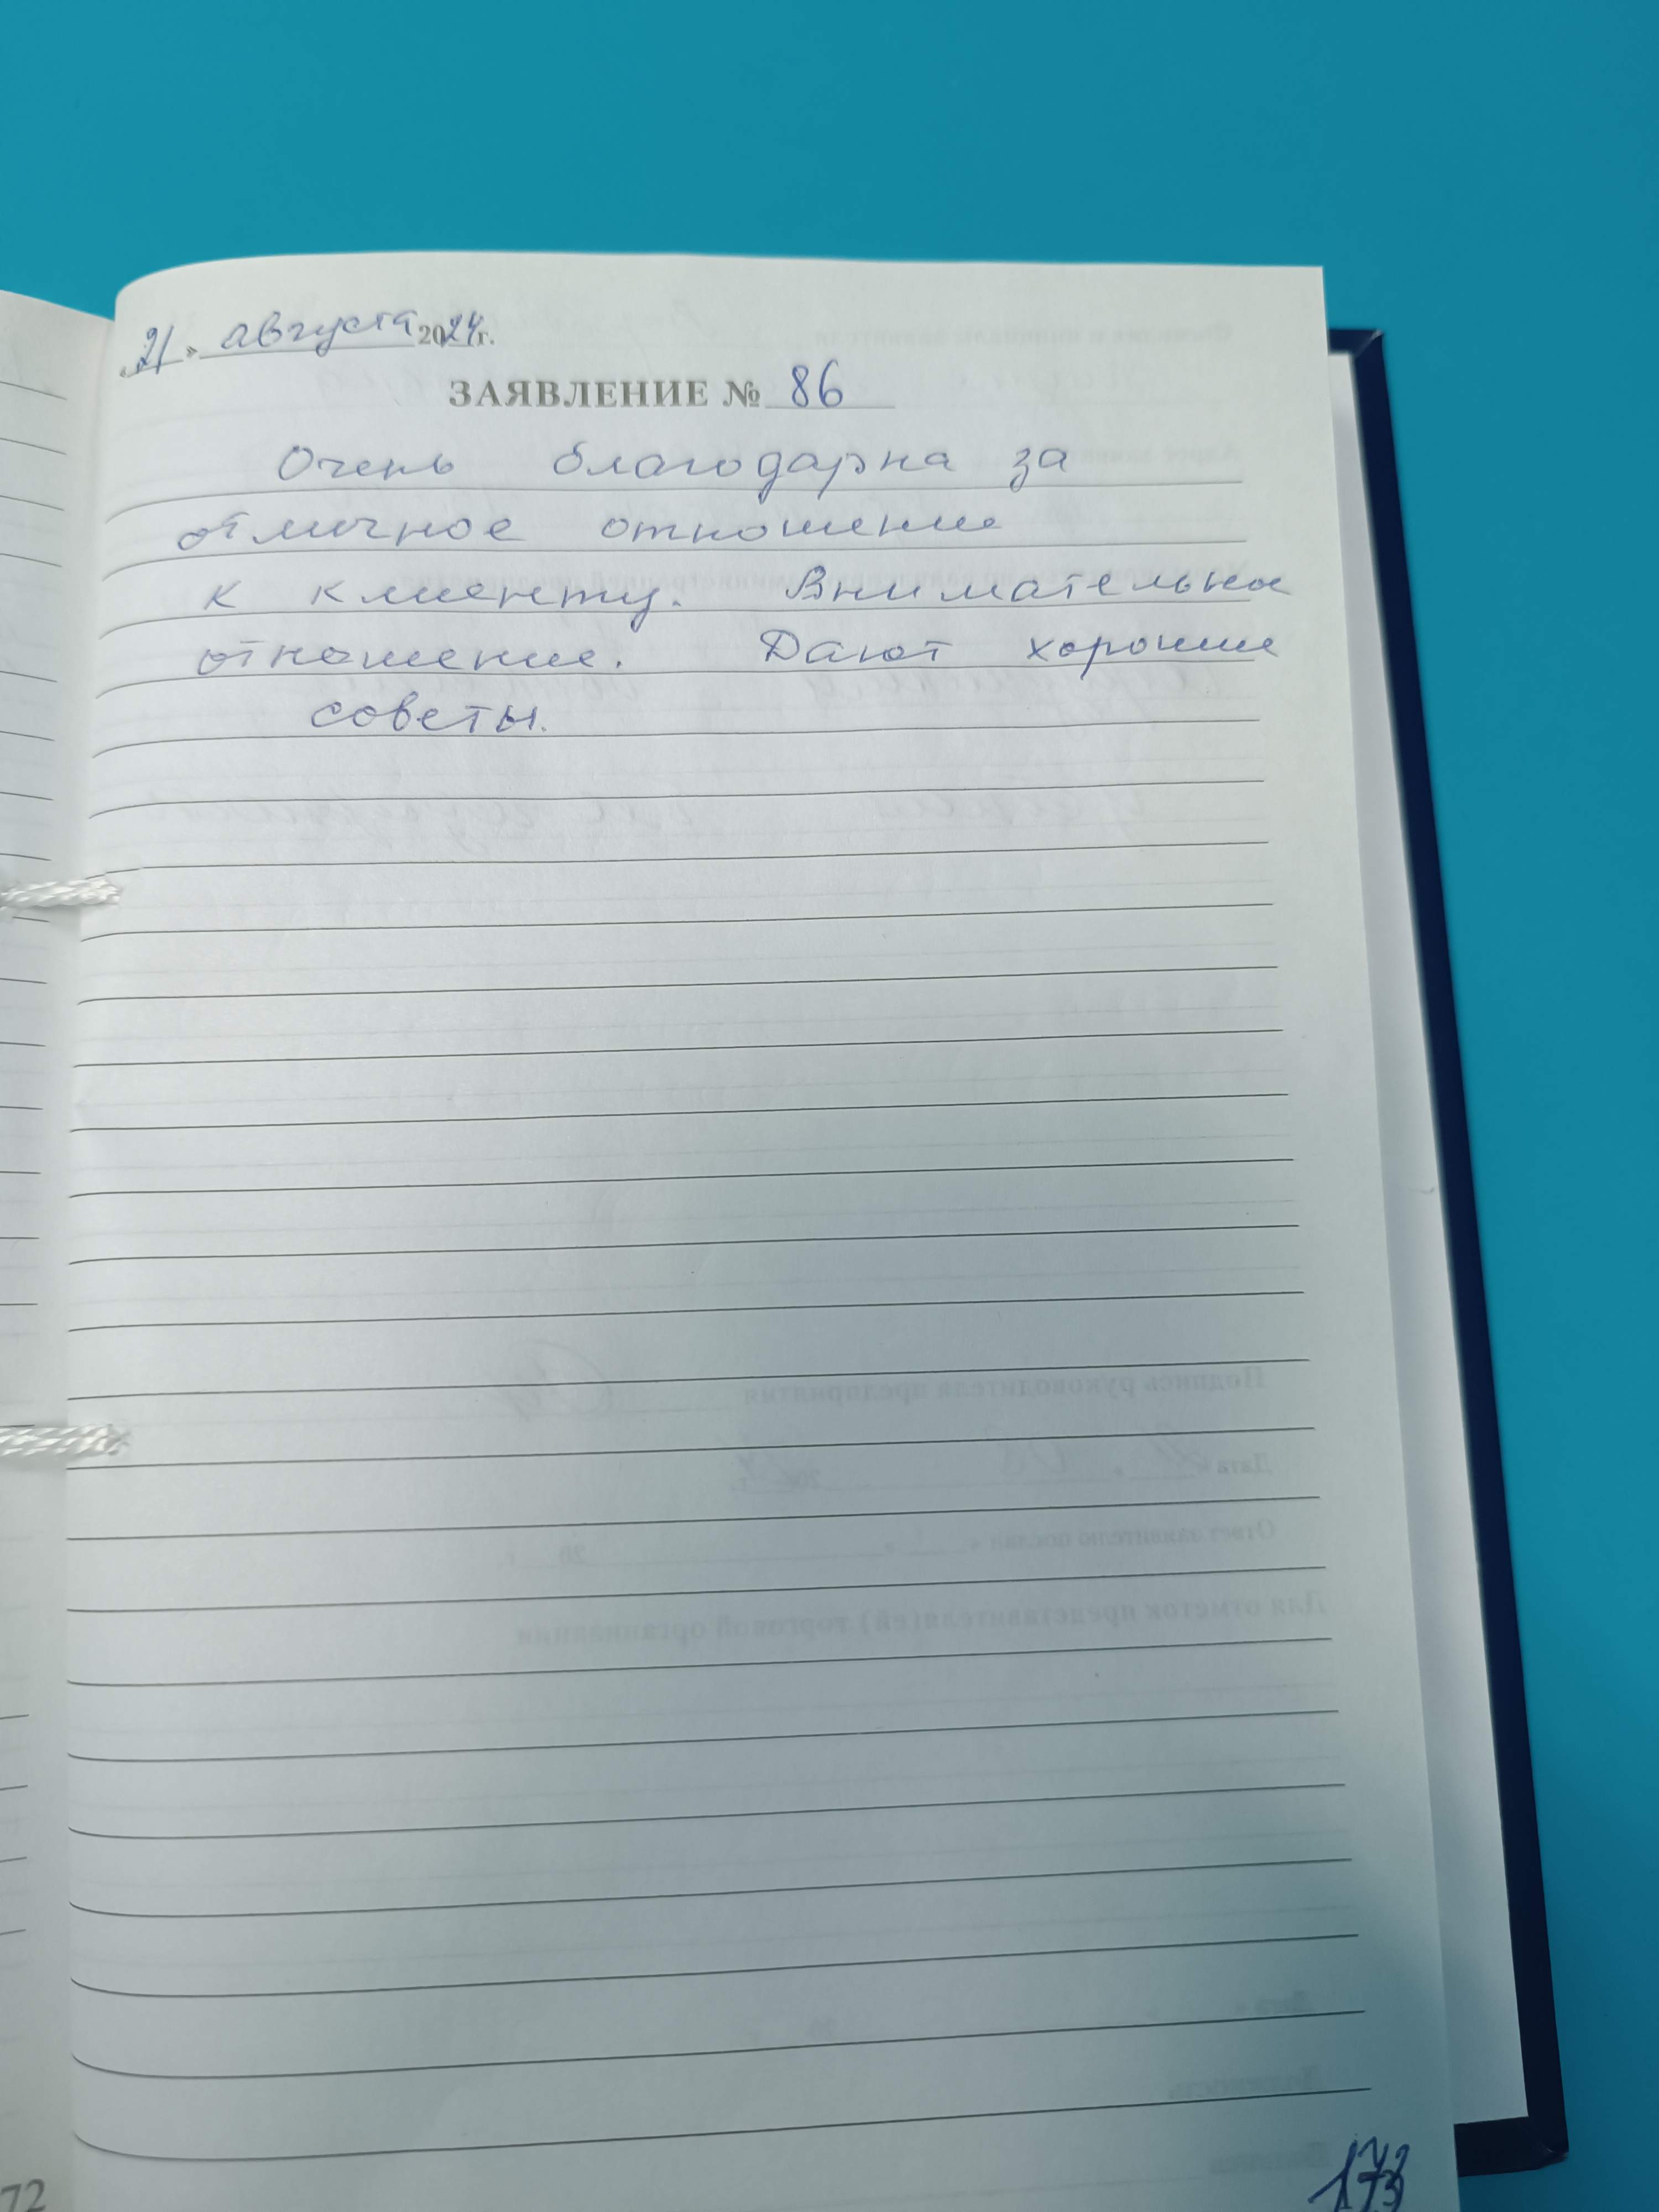 «21» августа 2024г.
ЗАЯВЛЕНИЕ № 86
Очень благодарна за
отличное отношение
к клиенту. Внимательное
отношение. Дают хорошие
советы.
72
173